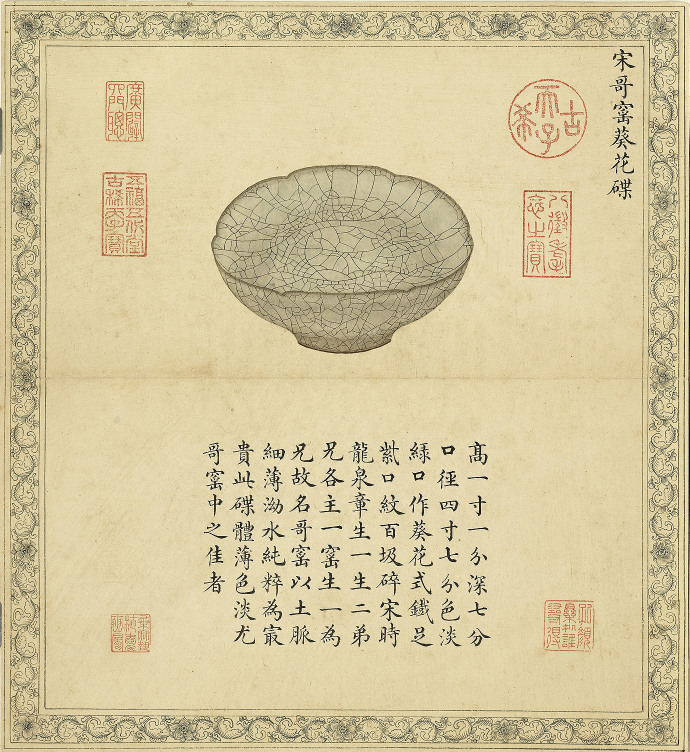 宋哥窰葵花碟
古希天子
八徵耄念之寶
五福五代堂古稀天子寶
高一寸一分深七分
口徑四寸七分色淡
綠口作葵花式鐵足
紫口紋百圾碎宋時
龍泉章生一生二弟
兄各主一窰生一為
兄故名哥窰以土脈
細薄泑水純粹為㝡
貴此碟體薄色淡尤
哥窰中之佳者